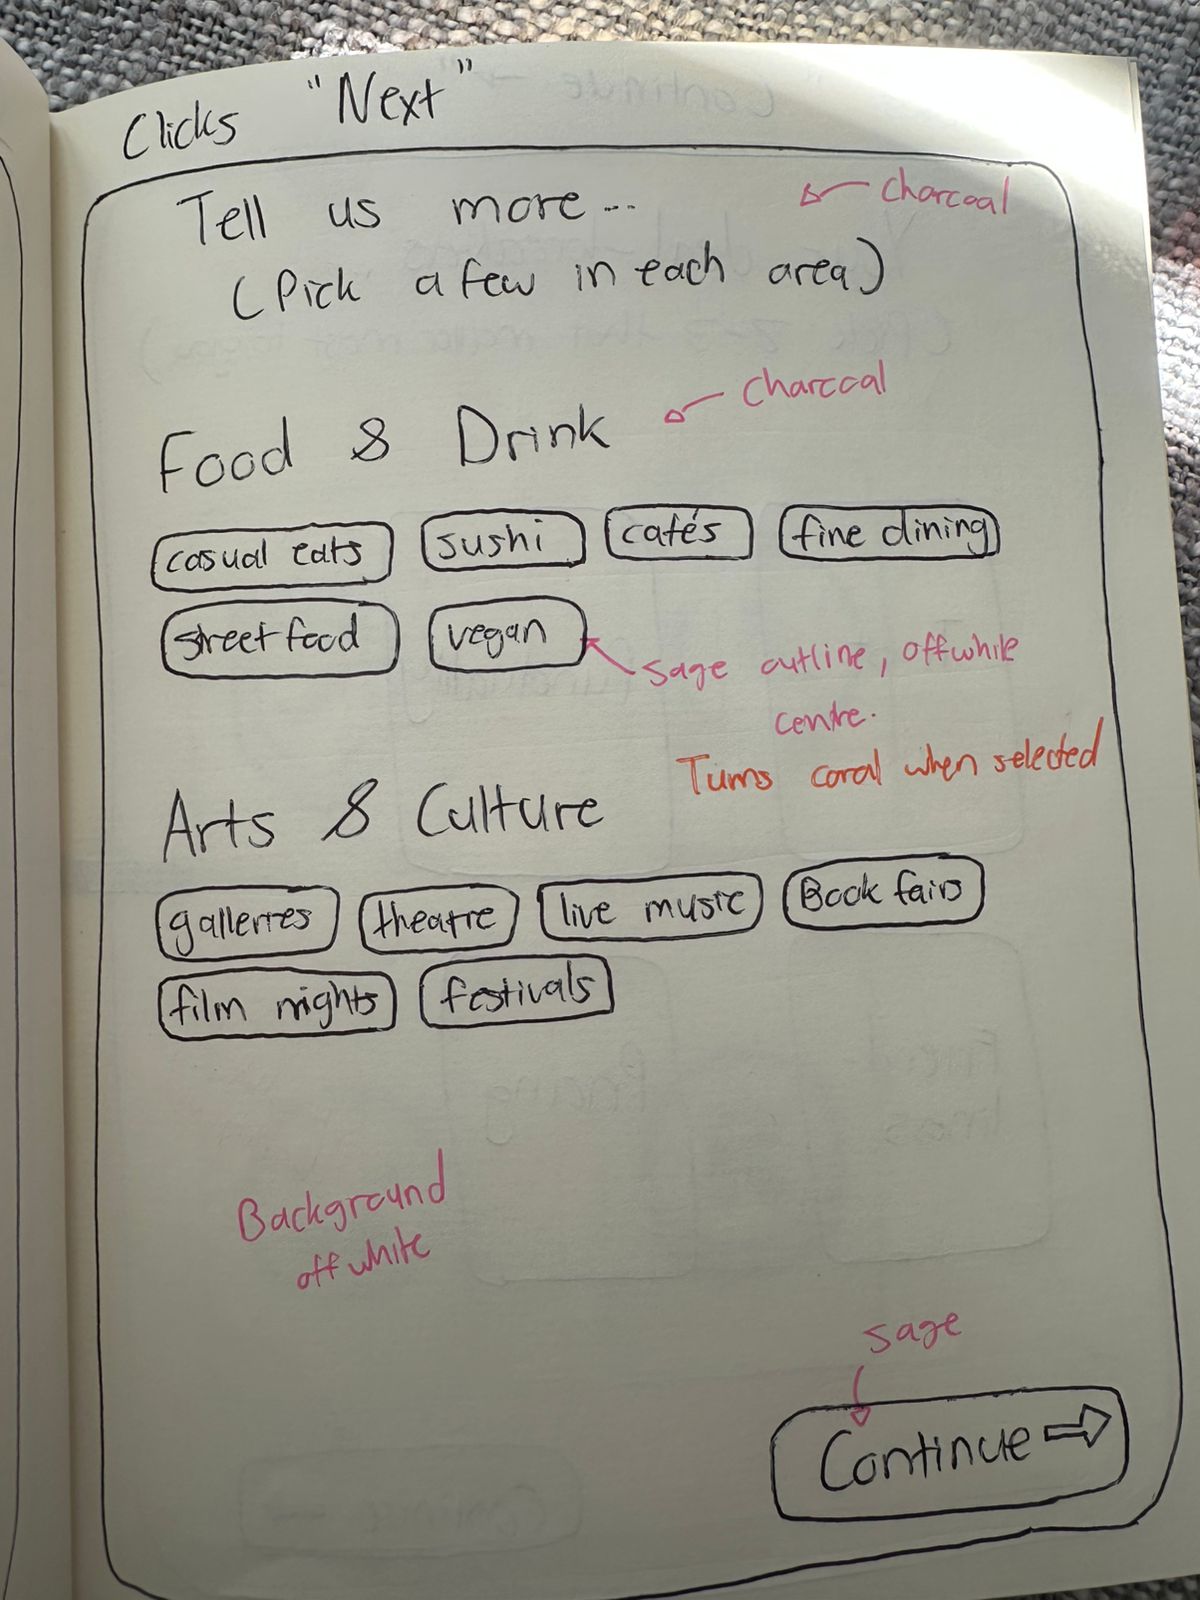 Clicks "Next"
Tell us more...
charcoal
(Pick a few in each area)
charcoal
Food & Drink
casual eats
sushi
cafés
fine dining
street food
vegan
sage outline, offwhite
centre.
Turns coral when selected
Arts & Culture
galleries
theatre
live music
Book fairs
film nights
festivals
Background
off white
sage
Continue ⇨